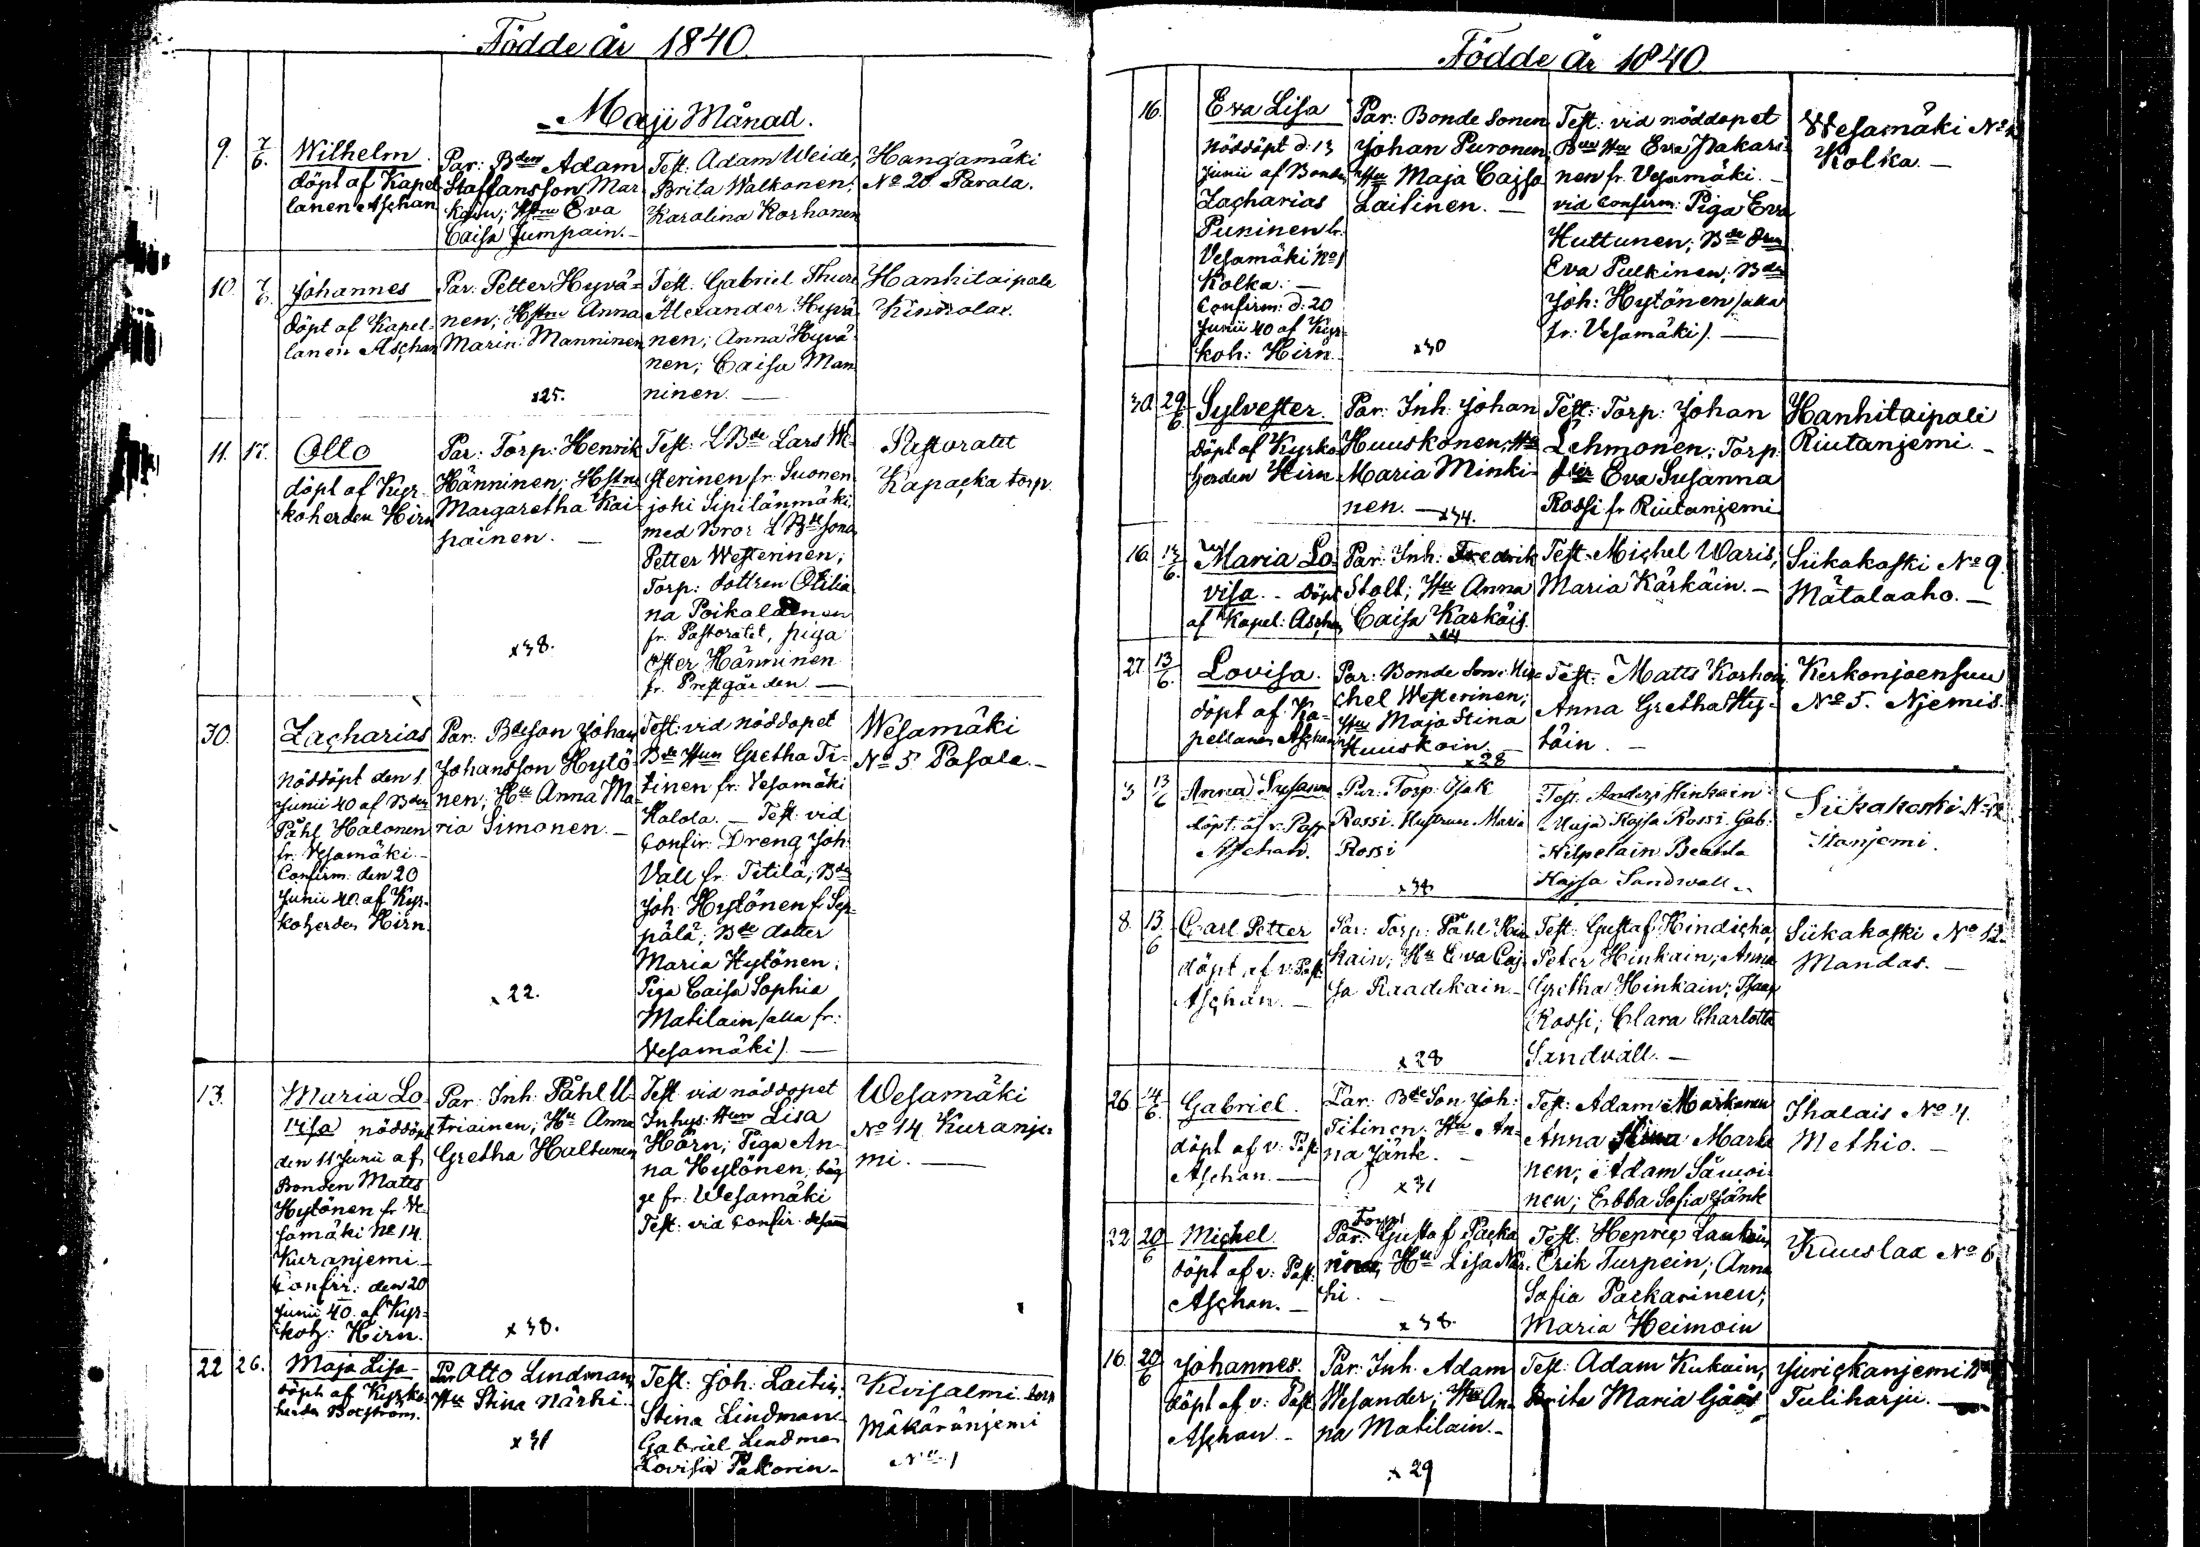 Födde År 1840.
Maji Månad.
9. 7/6. Wilhelm.
döpt af Kapel-
lanen Aschan
Par: Bden Adam
Staffansson Mar-
kain; Hstru Eva
Caisa Jumpain.-
Test: Adam Weide;
Brita Walkonen;
Karolina Korhonen
Hangamäki
No 20. Parala.
10. 7/6. Johannes
döpt af Kapel-
lanen Aschan
Par: Petter Hyvä-
nen; Hstru Anna
Maria Manninen
x25.
Test. Gabriel Thure
Alexander Hyvä-
nen; Anna Hyvä-
nen; Caisa Man-
ninen. —
Hanhitaipale
11. 17. Otto
döpt af Kyr-
koherden Hirn
Par: Torp: Henrik
Hänninen; Hstru
Margaretha Kai-
painen. —
x38.
Test: LBde Lars We-
sterinen fr: Suonen-
joki Sipilänmäki,
med Bror LBde sonen
Petter Westerinen;
Torp: dottren Otilia-
na Poikalainen
fr. Pastoratet, piga
Ester Hänninen
fr. Prestgården. —
Pastoratet
Kapacka torp.
30. Zacharias
Nöddöpt den 1
Junii 40 af Bden
Påhl Halonen
fr. Vesamäki.-
Confirm: den 20
Junii 40. af Kyr-
koherden Hirn.
Par: Bdeson Johan
Johansson Hytö-
nen; Hu Anna Ma-
ria Simonen. —
x 22.
Test: vid nöddopet
Bde Hun Gretha Ti-
tinen fr: Vesamäki
Halola. — Test: vid
Confir: Dreng Joh:
Vall fr. Titilä; Bde
Joh: Hytönen f: Sep-
pälä; Bde dotter
Maria Hytönen;
Piga Caisa Sophia
Matilain (alla fr:
Vesamäki). —
Wesamäki
No 5 Pasala.-
13. Maria Lo-
visa nöddöpt
den 11 Junii af
Bonden Mats
Hytönen fr. Ve-
samäki No 14.
Kuranjemi.-
Confir: den 20
Junii 40. af Kyr-
koh: Hirn.
Par: Inh: Påhl U-
triainen; Hu Anna
Gretha Haltunen
x 38.
Test vid nöddopet
Inhys: Hun Lisa
Hörn; Piga An-
na Hytönen, båg-
ge fr: Wesamäki
Test: vid Confir.
Wesamäki
No 14. Kuranje-
mi. —
22 26. Maja Lisa-
döpt af Kyrko-
herden
Par Otto Lindman,
Hu Stina Närhi.
x 31
Test: Joh: Laitin,
Stina Lindman
Gabriel Lindman
Lovisa
Kivisalmi torp
Mäkäränjemi
No 1
Födde År 1840.
16. Eva Lisa
Nöddöpt d: 13
Junii af Bonden
Zacharias
Puninen fr.
Vesamäki No 1
Kolka. —
Confirm: d: 20
Junii 40 af Kyr-
koh: Hirn.
Par: Bonde Sonen
Johan Puronen
Hu Maja Cajsa
Laitinen. —
x30
Test: vid nöddopet
Eva Pakari-
nen fr. Vesamäki. —
vid Confirm: Piga Eva
Huttunen; Bde
Eva Pulkinen; Bden
Joh: Hytönen (alla
fr: Vesamäki). —
Wesamäki No
Kolka. —
30. 29/6 Sylvester.
döpt af Kyrko-
herden Hirn
Par: Inh: Johan
Huuskonen; Hu
Maria Minki-
nen. —
x34.
Test: Torp: Johan
Lehmonen; Torp
Eva Susanna
Rossi fr Riutanjemi
Hanhitaipali
Riutanjemi. —
16. 13/6. Maria Lo-
visa. - döpt
af Kapel: Aschan
Par: Inh: Fredrik
Stolt; Hu Anna
Caisa Karkäis.
x44
Test: Michel Waris;
Maria Kärkäin. —
Siikakoski No 9
Mätalaaho. —
27. 13/6. Lovisa.
döpt af Ka-
pellanen Aschan
Par: Bonde Son: Mi-
chel Westerinen;
Hu Maja Stina
Huuskoin. —
x28
Test: Matts Korhoin,
Anna Gretha Hy-
töin. —
Kerkonjoensuu
No 5. Njemis.
3 13/6 Anna Susanna
döpt af v. Past
Aschan.
Par. Torp. Isak
Rossi. Hustrun Maria
Rossi
x34
Test: Anders Hinkain
Maja Kajsa Rossi. Gab:
Hilpelain Beatta
Kajsa Sandwall.
Siikakoski No 12
Itanjemi.
8. 13/6 Carl Petter
döpt af v: Past.
Aschan. —
Par: Torp: Påhl Hin-
kain; Hu Eva Caj-
sa Raadikain.-
x28
Test: Gustaf Hindicka,
Peter Hinkain; Anna
Gretha Hinkain; Isaac
Rossi; Clara Charlotta
Sandvall. —
Siikakoski No 12.
Mandas. —
26 14/6. Gabriel.
döpt af v: Past
Aschan. —
Par: Bde Son Joh:
Titinen. Hu An-
na Jänk. —
x31
Test: Adam Markanen
Anna Stina Marka-
nen; Adam Sämoi-
nen; Ebba Sofia Jänk
Ihalais No 4.
Methio. —
22 20/6 Michel.
döpt af v: Past:
Aschan. —
Torp
Par: Gustaf Packa-
Hu Lisa När-
hi. —
x 38.
Test: Henric Laukain,
Erik Turpein; Anna
Sofia Packarinen;
Maria Heimoin
Kuuslax No 6
16. 20/6 Johannes.
döpt af v: Past
Aschan. —
Par: Inh. Adam
Wesander; Hu An-
na Matilain.-
x 29
Test: Adam Kukoin;
Brita Maria Gåås
Jyrickanjemi
Tuliharju. —